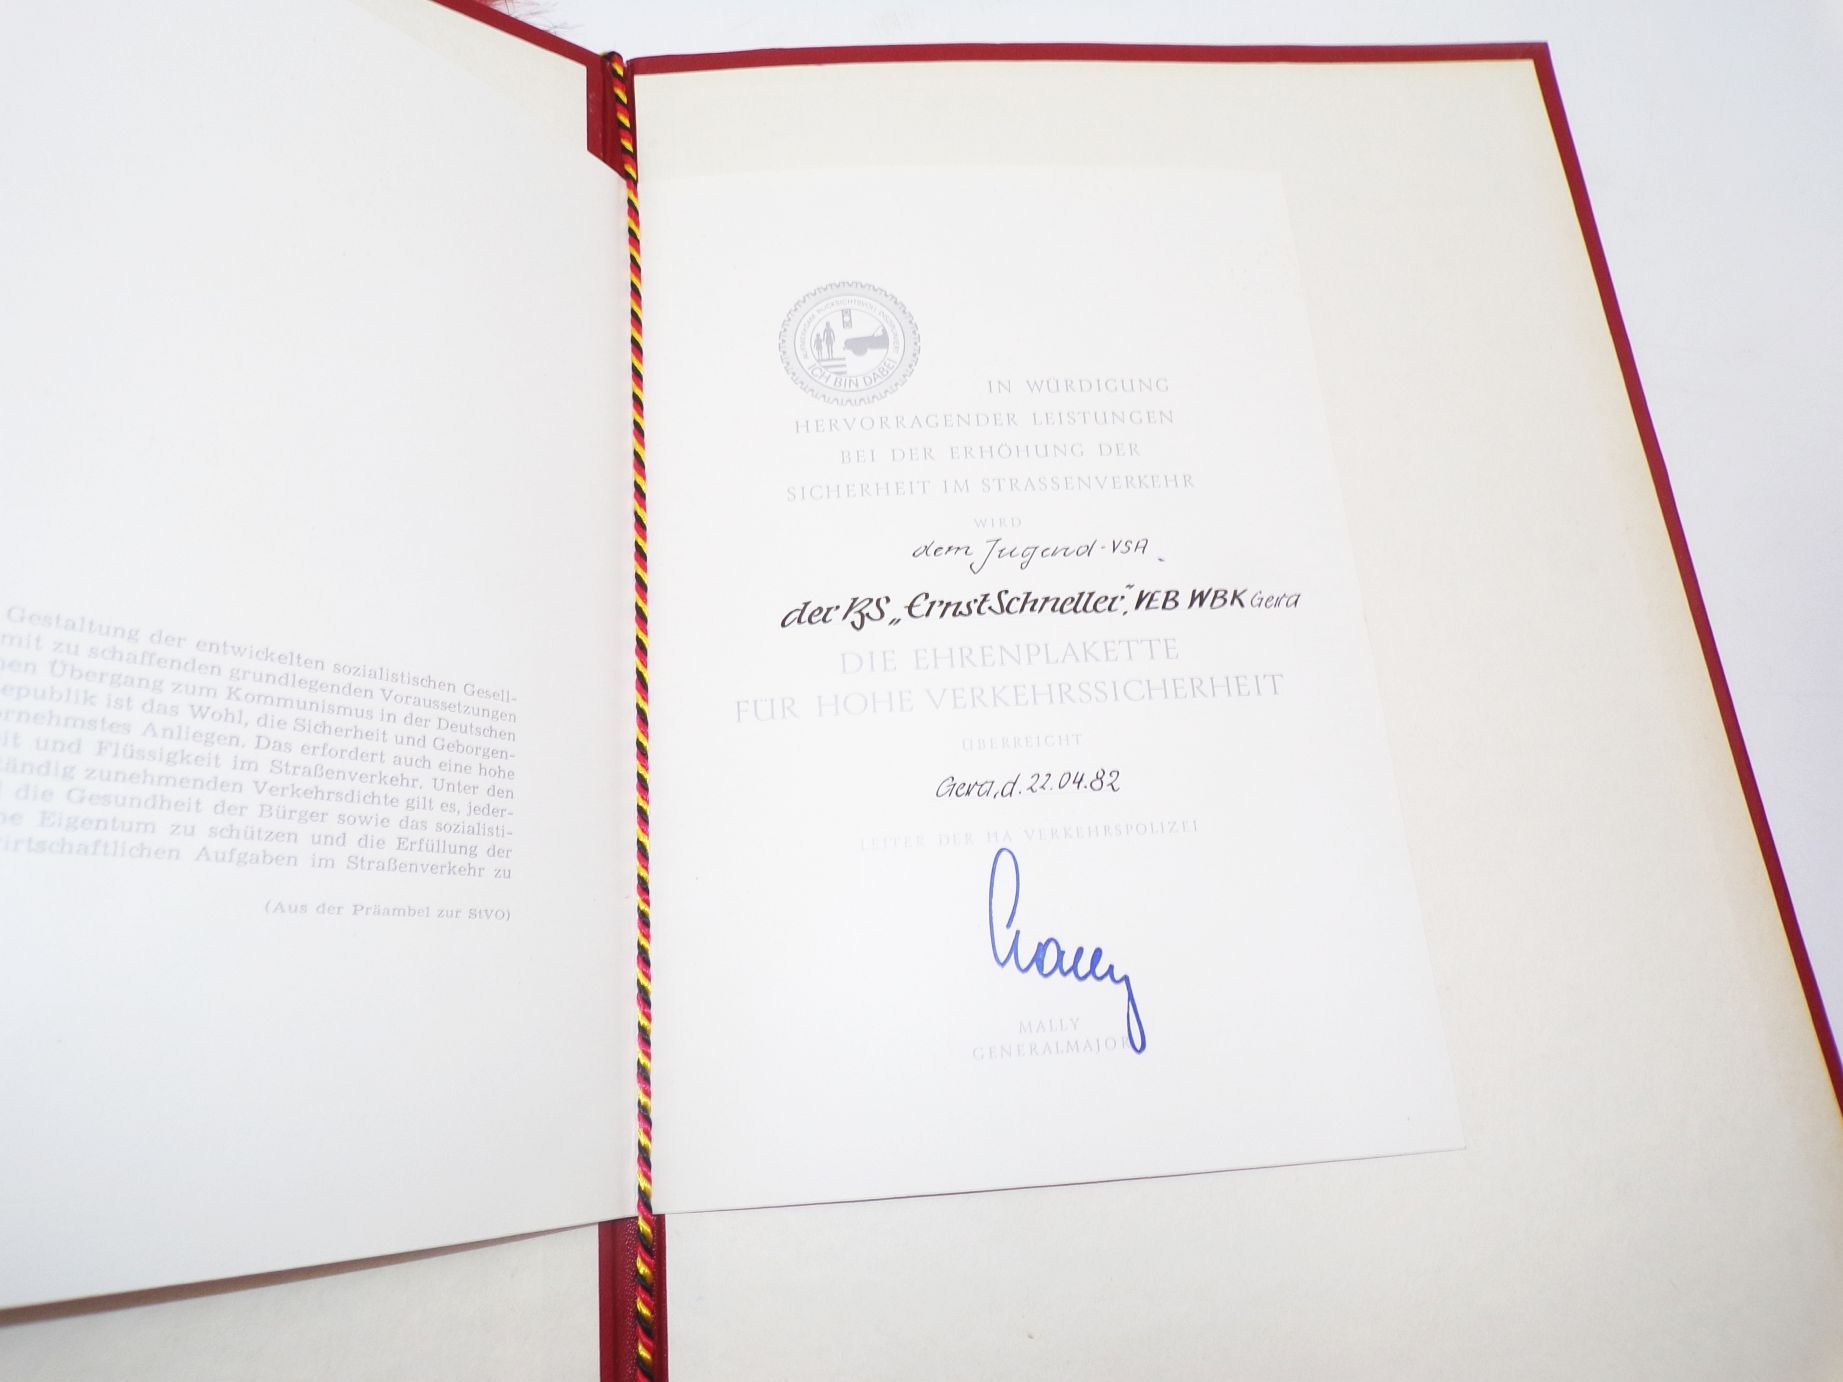 Gestaltung der entwickelten sozialistischen Gesell-
mit zu schaffenden grundlegenden Voraussetzungen
en Übergang zum Kommunismus in der Deutschen
epublik ist das Wohl, die Sicherheit und Geborgen-
rnehmstes Anliegen. Das erfordert auch eine hohe
it und Flüssigkeit im Straßenverkehr. Unter den
tändig zunehmenden Verkehrsdichte gilt es, jeder-
die Gesundheit der Bürger sowie das sozialisti-
he Eigentum zu schützen und die Erfüllung der
wirtschaftlichen Aufgaben im Straßenverkehr zu
(Aus der Präambel zur StVO)
RÜCKSICHTSVOLL
ICH BIN DABEI
IN WÜRDIGUNG
HERVORRAGENDER LEISTUNGEN
BEI DER ERHÖHUNG DER
SICHERHEIT IM STRASSENVERKEHR
WIRD
dem Jugend-VSA
der BS „Ernst Schneller", VEB WBK Gera
DIE EHRENPLAKETTE
FÜR HOHE VERKEHRSSICHERHEIT
ÜBERREICHT
Gera, d. 22.04.82
LEITER DER HA VERKEHRSPOLIZEI
Mally
MALLY
GENERALMAJOR